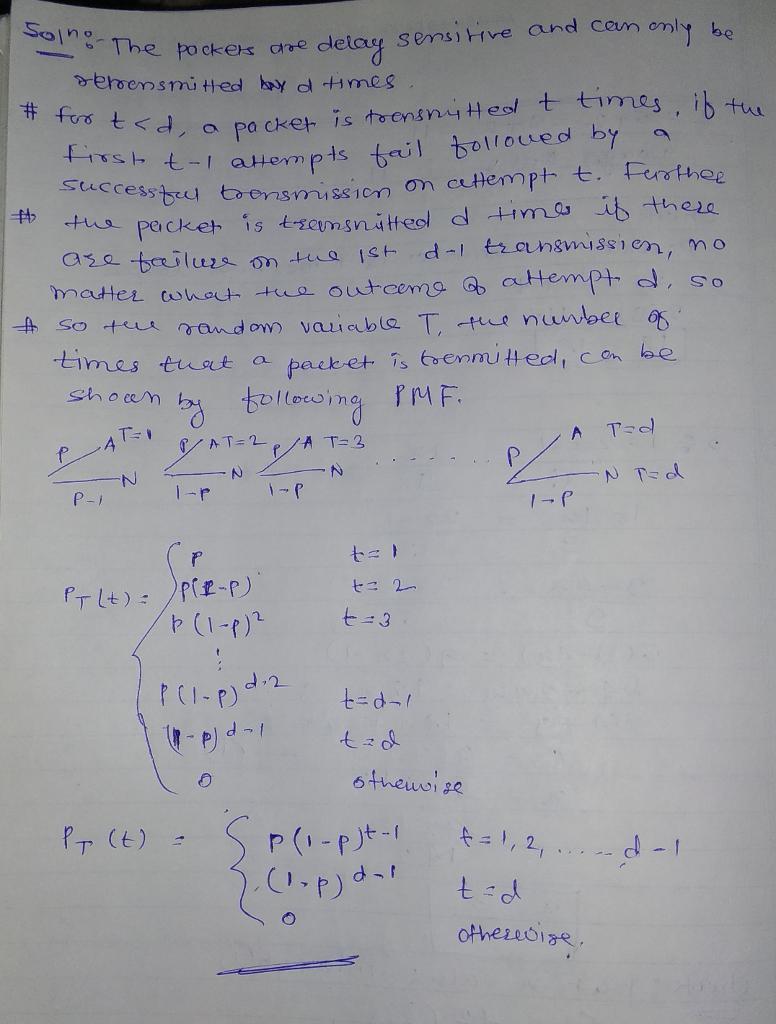 Soln:- The packets are delay sensitive and can only be
retransmitted d times.
# for t<d, a packet is transmitted t times, if the
first t-1 attempts fail followed by a
successful transmission on attempt t. Further
# the packet is transmitted d times if there
are failure on the 1st d-1 transmission, no
matter what the outcome of attempt d, so
# so the random variable T, the number of
times that a packet is trenmitted, can be
shown by following PMF.
P A T=1 P A T=2 P A T=3 ....... P A T=d
P-1 N 1-P N 1-P N 1-P N T=d
P t=1
PT(t) = P(1-P) t=2
P(1-P)² t=3
⋮
P(1-P)^d-2 t=d-1
(1-P)^d-1 t=d
0 otherwise
PT(t) = { P(1-P)^t-1 t=1,2,.....d-1
(1-P)^d-1 t=d
0 otherwise.